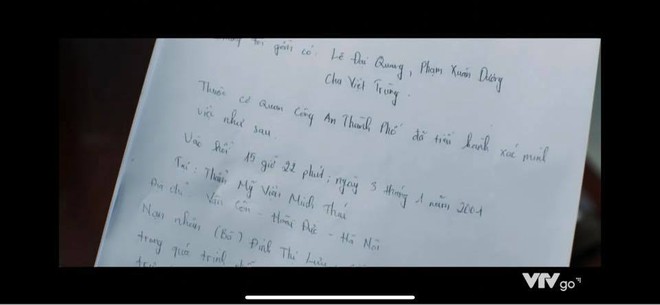 gồm có: Lê Đại Quang, Phạm Xuân Dương
Chu Việt Trung.
Thuộc cơ quan Công An Thành Phố đã tiến hành xác minh
việc như sau.
Vào hồi 15 giờ 22 phút, ngày 3 tháng 1 năm 2001
Tại: Thẩm Mỹ Viện Minh Thu
Địa chỉ Vân Côn - Hoài Đức - Hà Nội
Nạn nhân (Bà) Đinh Thị
trong quá trình
VTV go